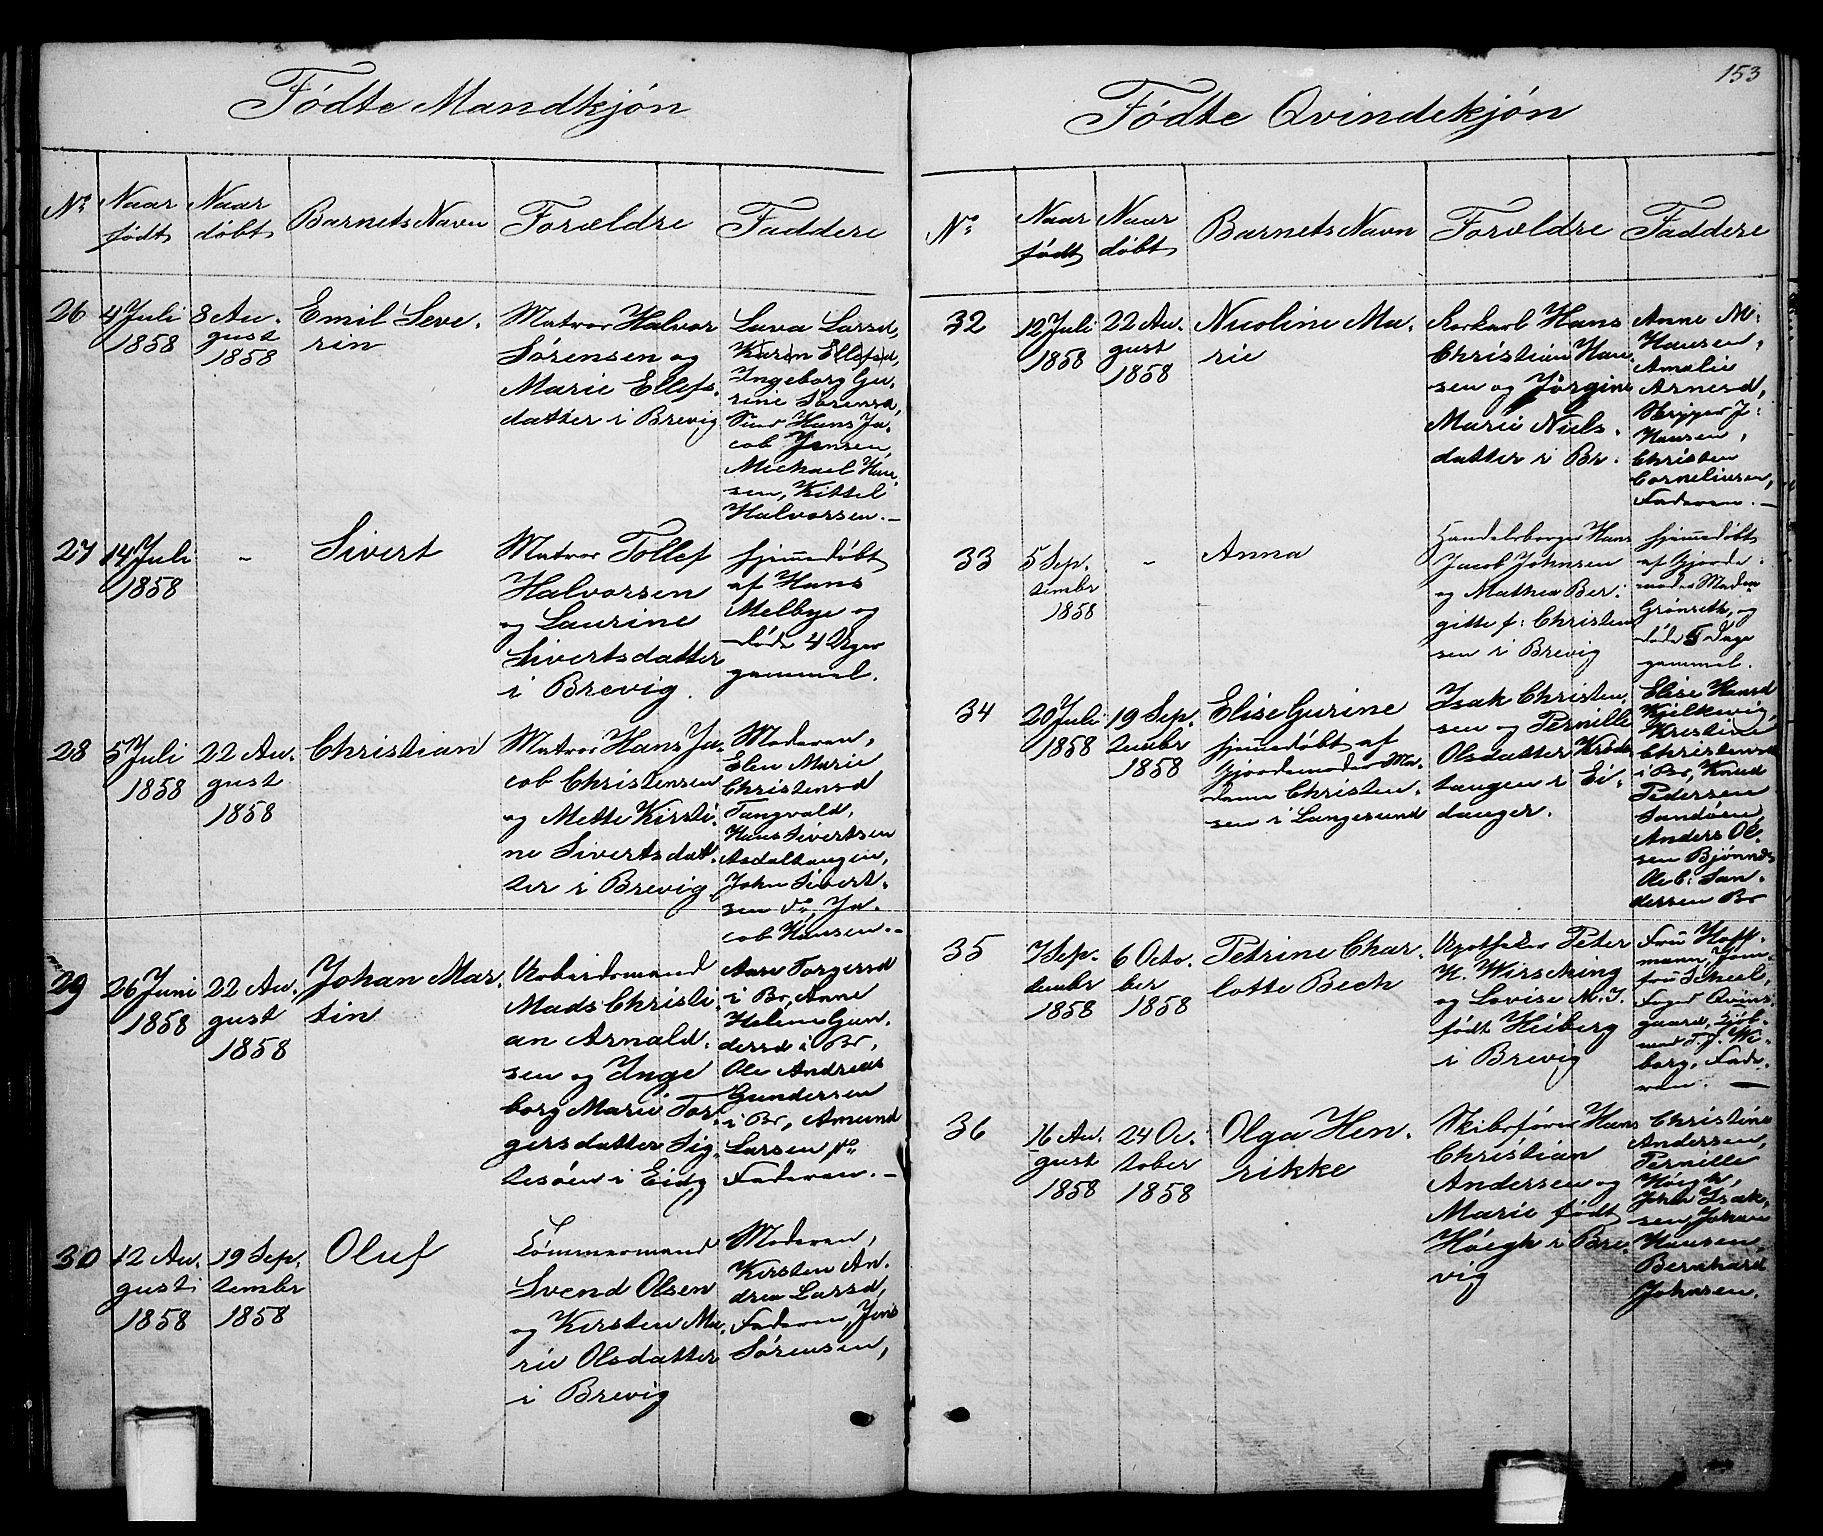 Fødte Mandkjøn
No Naar født Naar døbt Barnets Navn Forældre Faddere
26 4 Juli 1858 8 August 1858
Emil Seve-
rin
Matros Halvor
Sørensen og
Marie Ellefs-
datter i Brevig
Lava Larsd,
Karen Ellefsd,
Ingeborg Gu-
rine Sørensd,
Hans Ja-
cob Jensen,
Michael Han-
sen, Kittel
Halvorsen.-
27 14 Juli 1858 -
Sivert
Matros Tollef
Halvorsen
og Laurine
Sivertsdatter
i Brevig.
hjemmedøbt
af Hans
Melbye og
døde 4 Uger
gammel.
28 5 Juli 1858 22 Au-
gust
1858
Christian
Matros Hans Ja-
cob Christensen
og Mette Kirsti-
ne Sivertsdat-
ter i Brevig
Moderen,
Elen Marie
Christensd
Tangvald,
Hans Sivertsen
Asdaltangen,
John Sivert-
sen do, Ja-
cob Hansen.-
29 26 Juni 1858 22 Au-
gust
1858
Johan Mar-
tin
Arbeidsmand
Mads Christi-
an Arnald-
sen og Inge
borg Marie Tor-
gersdatter Sig-
tesøen i Eidg
Aase Torgersd
i Br, Anne
Helene Gun-
dersd i Br,
Ole Andreas
Gundersen
i Br, Amund
Larsen do
Faderen.-
30 12 Au-
gust
1858
19 Sep-
tember
1858
Oluf
Tømmermand
Svend Olsen
og Kirsten Ma-
rie Olsdatter
i Brevig
Moderen,
Kirsten An-
drea Larsd,
Faderen, Jens
Sørensen,
153
Fødte Qvindekjøn
No Naar født Naar døbt Barnets Navn Forældre Faddere
32 12 Juli 1858 22 Au-
gust
1858
Nicoline Ma-
rie
Rorkarl Hans
Christian Han-
sen og Jørgine
Marie Niels-
datter i Br.
Anne M:
Hansen,
Amalie
Arnesd,
Skipper J:
Hansen,
Christen
Corneliusen,
Faderen.-
33 5 Sep-
tember
1858
-
Anna
Handelsborger Hans
Jacob Johnsen
og Mathea Ber-
gitte f: Christen
sen i Brevig
hjemmedøbt
af Gjorde-
moder Madm
Grønseth, og
døde 5 Dage
gammel.
34 20 Juli
1858
19 Sep-
tember
1858
Elise Gurine
hjemmedøbt af
Gjordemoder Ma-
dame Christen-
sen i Langesund
Isak Christen
sen og Pernille
Olsdatter Krogs-
tangen i Ei-
danger.
Elise Hansd
Kilkevig,
Kristine
Christensd
i Br, Knud
Pedersen
Sandøen,
Anders Ol-
sen Bjønnes
Ole C: San-
dersen Br
35 7 Sep-
tember
1858
6 Octo-
ber
1858
Petrine Char-
lotte Bech
Apotheker Peter
H. Wirsching
og Lovise M. J.
født Heiberg
i Brevig
Fru Hoff-
mann, Jom-
fru Scheel,
Foged Qvins-
gaard, Kjøb-
mand T. J. Wi-
borg, Fade-
ren. -
36 16 Au-
gust
1858
24 Oc-
tober
1858
Olga Hen-
rikke
Skibsfører Hans
Christian
Andersen og
Marie født
Høegh i Bre-
vig
Christine
Andersen,
Pernille
Høegh,
John Isak-
sen, Johan
Hansen,
Bernhard
Johnsen.